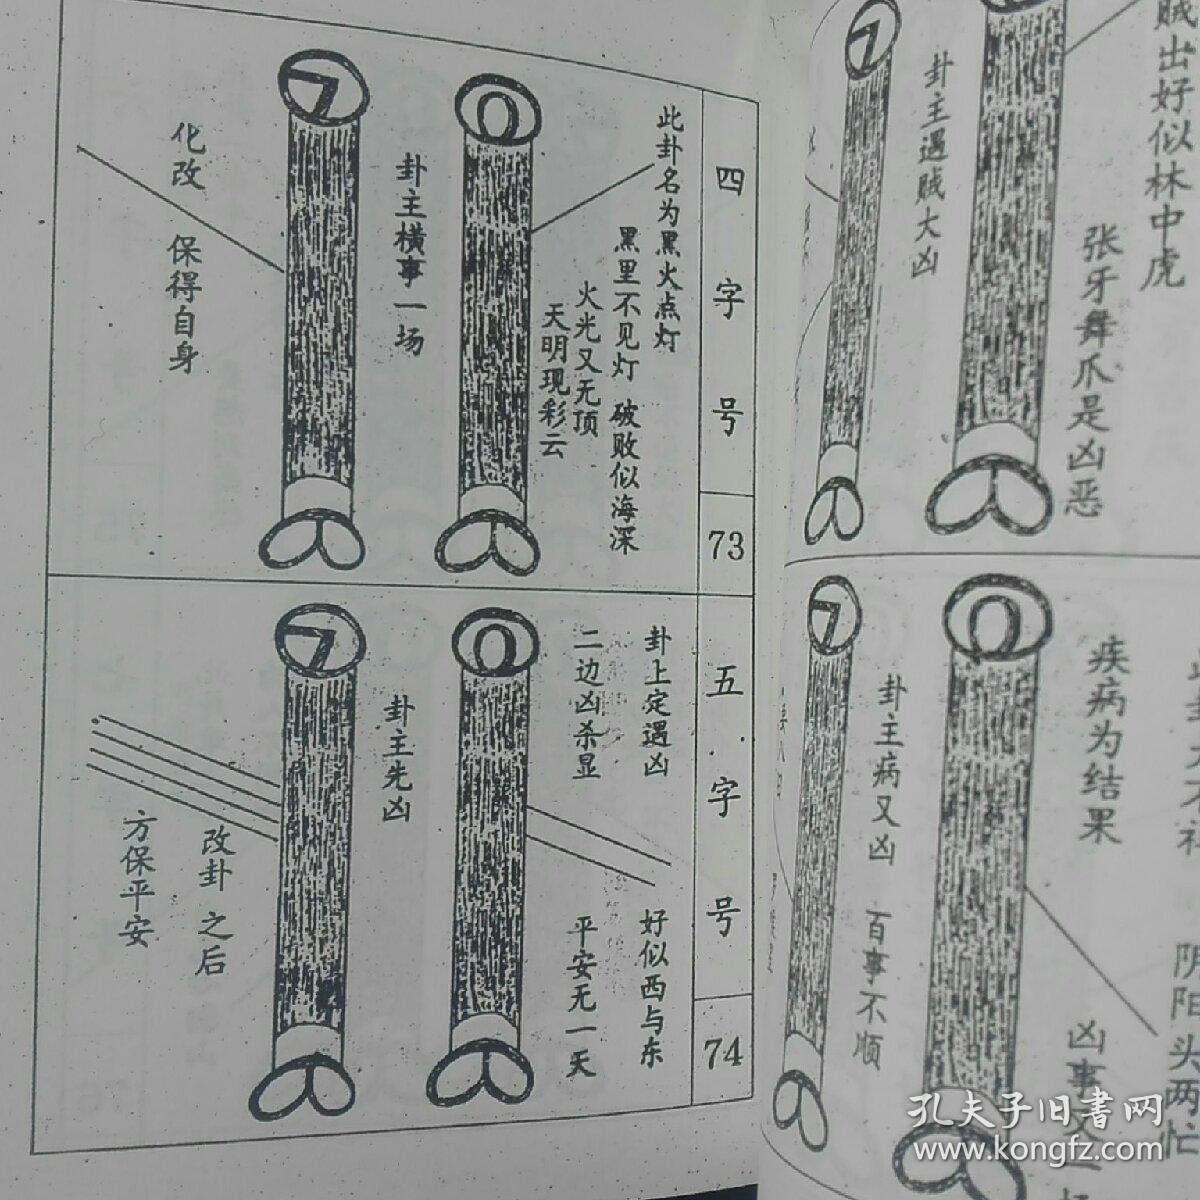 四字号
73
此卦名为黑火点灯
黑里不见灯 破败似海深
火光又无顶
天明现彩云
0
卦主横事一场
7
化改 保得自身
五字号
74
卦上定遇凶 好似西与东
二边凶杀显 平安无一天
0
卦主先凶
7
改卦之后
方保平安
贼出好似林中虎
张牙舞爪是凶恶
卦主遇贼大凶
7
阴阳头两忙
疾病为结果 凶事又一场
0
卦主病又凶 百事不顺
7
孔夫子旧书网
www.kongfz.com